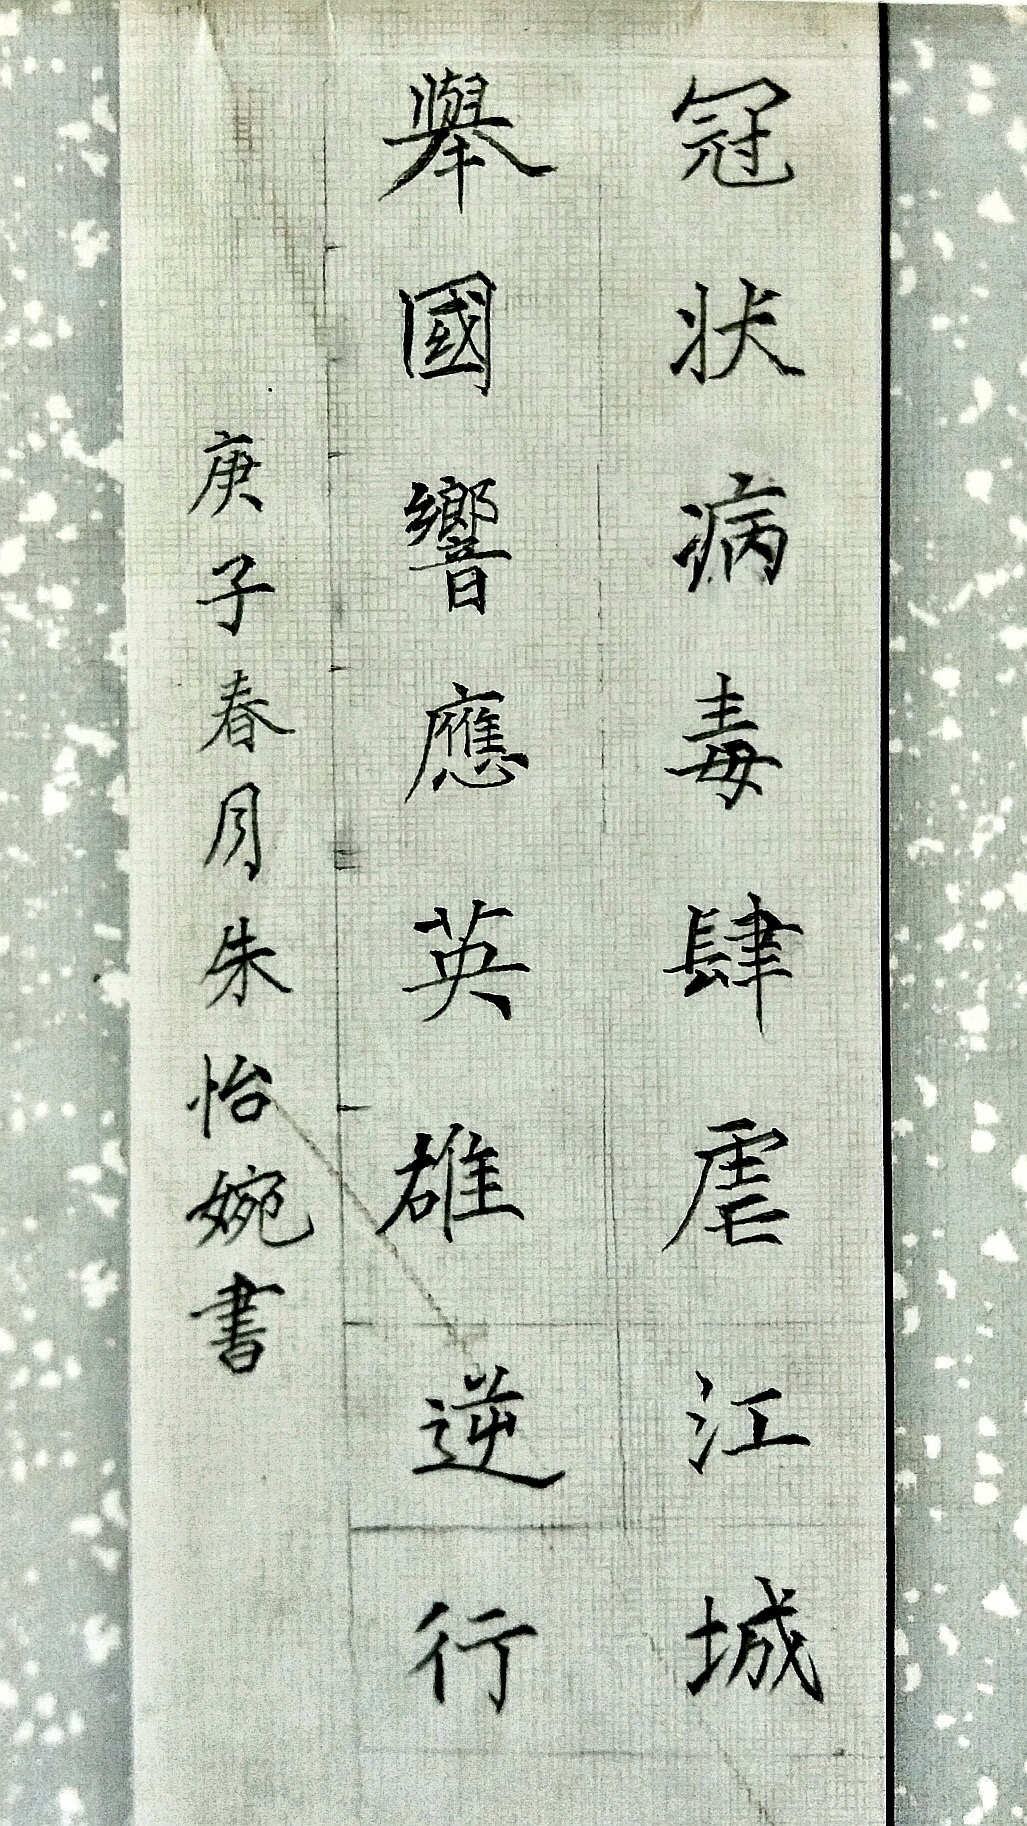 冠状病毒肆虐江城
舉國響應英雄逆行
庚子春月朱怡婉書